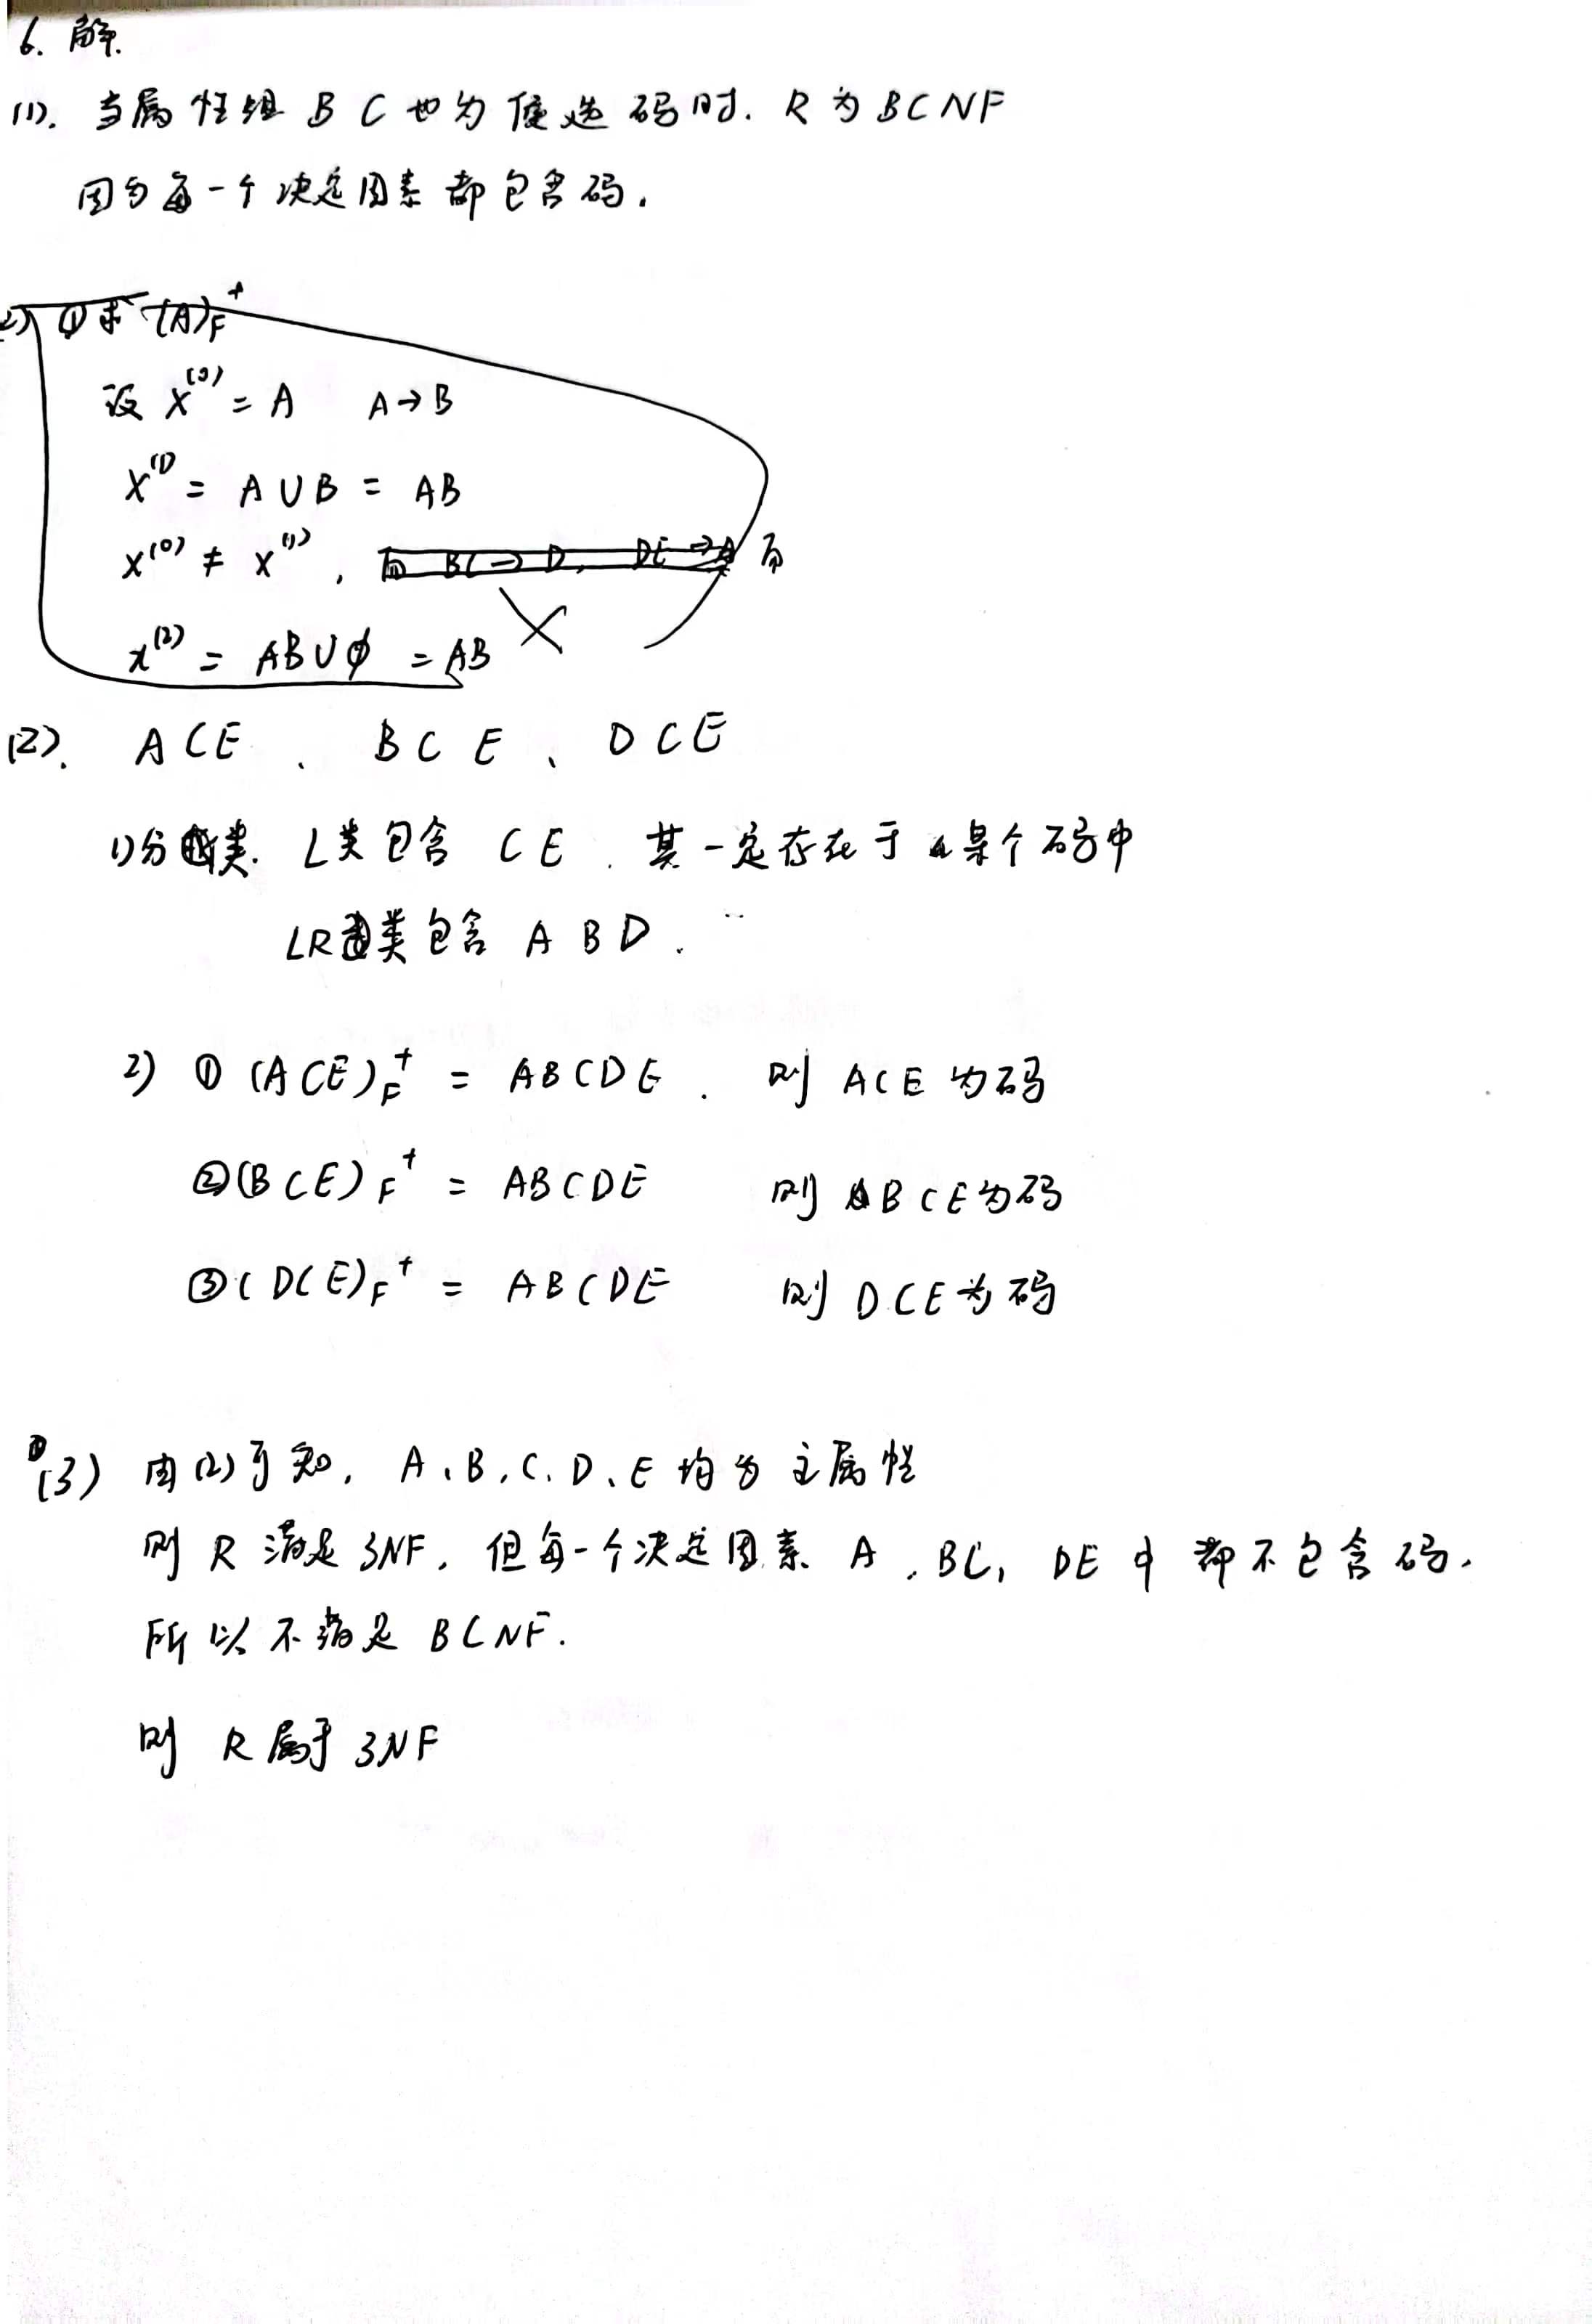 6. 解.
(1). 当属性组 B C 也为候选码时. R 为 BCNF
因为每一个决定因素都包含码.
(2) ① 求 (A)F+
设 X(0) = A A→B
X(1) = A∪B = AB
X(0) ≠ X(1), 而 BC→D, DE→A 而
X(2) = AB∪∅ = AB
(2). ACE 、 BCE 、 DCE
1)分类. L类包含 CE . 其一定存在于某个码中
LR类包含 A B D .
2) ① (ACE)F+ = ABCDE . 则 ACE 为码
②(BCE)F+ = ABCDE 则 BCE为码
③(DCE)F+ = ABCDE 则 DCE为码
(3) 由(2)可知, A、B、C、D、E 均为主属性
则 R 满足 3NF, 但每一个决定因素 A , BC, DE 中都不包含码.
所以不满足 BCNF.
则 R 属于 3NF